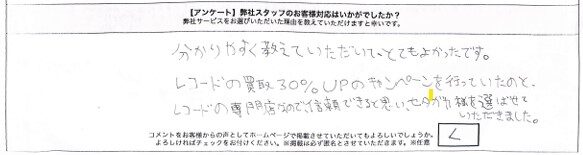 【アンケート】弊社スタッフのお客様対応はいかがでしたか？
弊社サービスをお選びいただいた理由を教えていただけますと幸いです。
分かりやすく教えていただいて、とてもよかったです。
レコードの買取30%UPのキャンペーンを行っていたのと、
レコードの専門店なので信頼できると思い、様を選ばせて
いただきました。
コメントをお客様からの声としてホームページで掲載させていただいてもよろしいでしょうか。
よろしければチェックをお付けください。※掲載は必ず匿名とさせていただきます。※任意